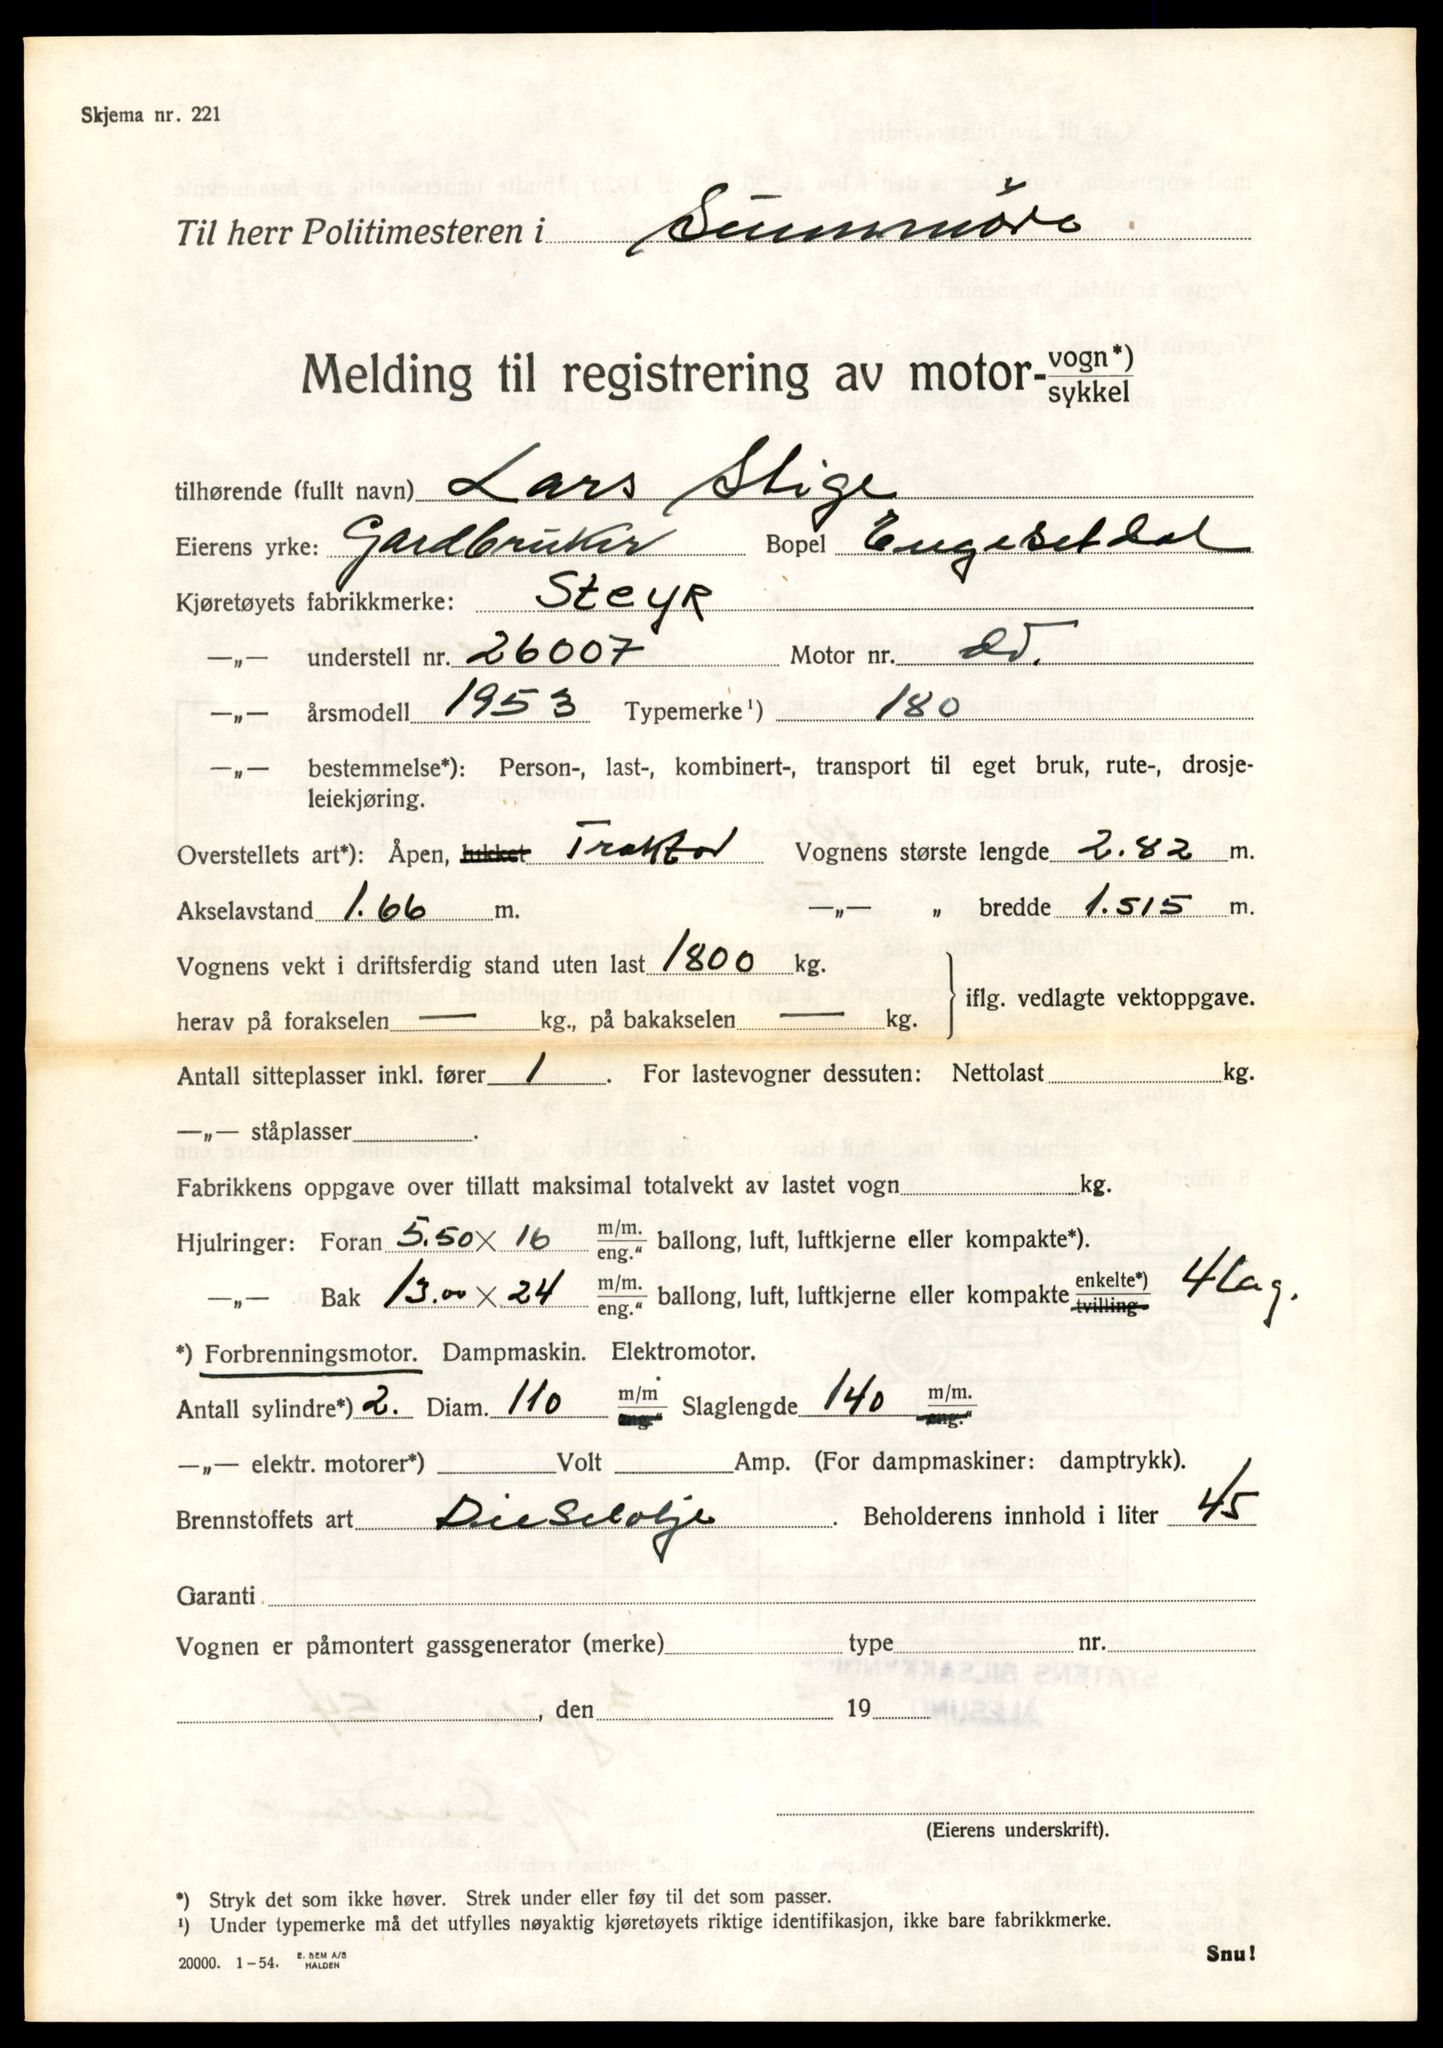 Skjema nr. 221
Til herr Politimesteren i Sunnmöre
Melding til registrering av motor-vogn*)
sykkel
tilhørende (fullt navn) Lars Stige
Eierens yrke: Gardbruker Bopel Engesetdal
Kjøretøyets fabrikkmerke: Steyr
—„— understell nr. 26007 Motor nr.
—„— årsmodell 1953 Typemerke¹) 180
—„— bestemmelse*): Person-, last-, kombinert-, transport til eget bruk, rute-, drosje-
leiekjøring.
Overstellets art*): Åpen, lukket Traktor Vognens største lengde 2.82 m.
Akselavstand 1.66 m. —„— „ bredde 1.515 m.
Vognens vekt i driftsferdig stand uten last 1800 kg.
herav på forakselen — kg., på bakakselen — kg. } iflg. vedlagte vektoppgave.
Antall sitteplasser inkl. fører 1 . For lastevogner dessuten: Nettolast kg.
—„— ståplasser .
Fabrikkens oppgave over tillatt maksimal totalvekt av lastet vogn kg.
Hjulringer: Foran 5.50 × 16 m/m. eng.“ ballong, luft, luftkjerne eller kompakte*).
—„— Bak 13.00 × 24 m/m. eng.“ ballong, luft, luftkjerne eller kompakte enkelte*) tvilling 4 lag.
*) Forbrenningsmotor. Dampmaskin. Elektromotor.
Antall sylindre*) 2. Diam. 110 m/m eng.“ Slaglengde 140 m/m. eng.“
—„— elektr. motorer*) Volt Amp. (For dampmaskiner: damptrykk).
Brennstoffets art Dieselolje . Beholderens innhold i liter 45
Garanti
Vognen er påmontert gassgenerator (merke) type nr.
, den 19
(Eierens underskrift).
*) Stryk det som ikke høver. Strek under eller føy til det som passer.
¹) Under typemerke må det utfylles nøyaktig kjøretøyets riktige identifikasjon, ikke bare fabrikkmerke.
20000. 1-54. E. SEM A/S HALDEN
Snu!